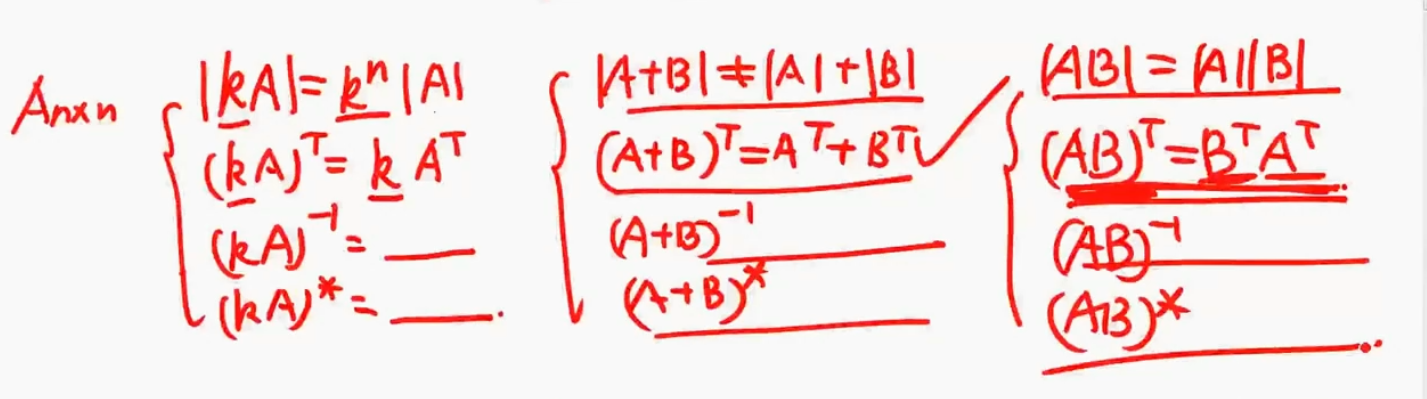 Aₙₓₙ
|kA| = kⁿ|A|
(kA)ᵀ = kAᵀ
(kA)⁻¹ = ____
(kA)* = ____.
|A+B| ≠ |A|+|B|
(A+B)ᵀ = Aᵀ+Bᵀ ✓
(A+B)⁻¹ ____
(A+B)* ____
|AB| = |A||B|
(AB)ᵀ = BᵀAᵀ
(AB)⁻¹ ____
(AB)* ____